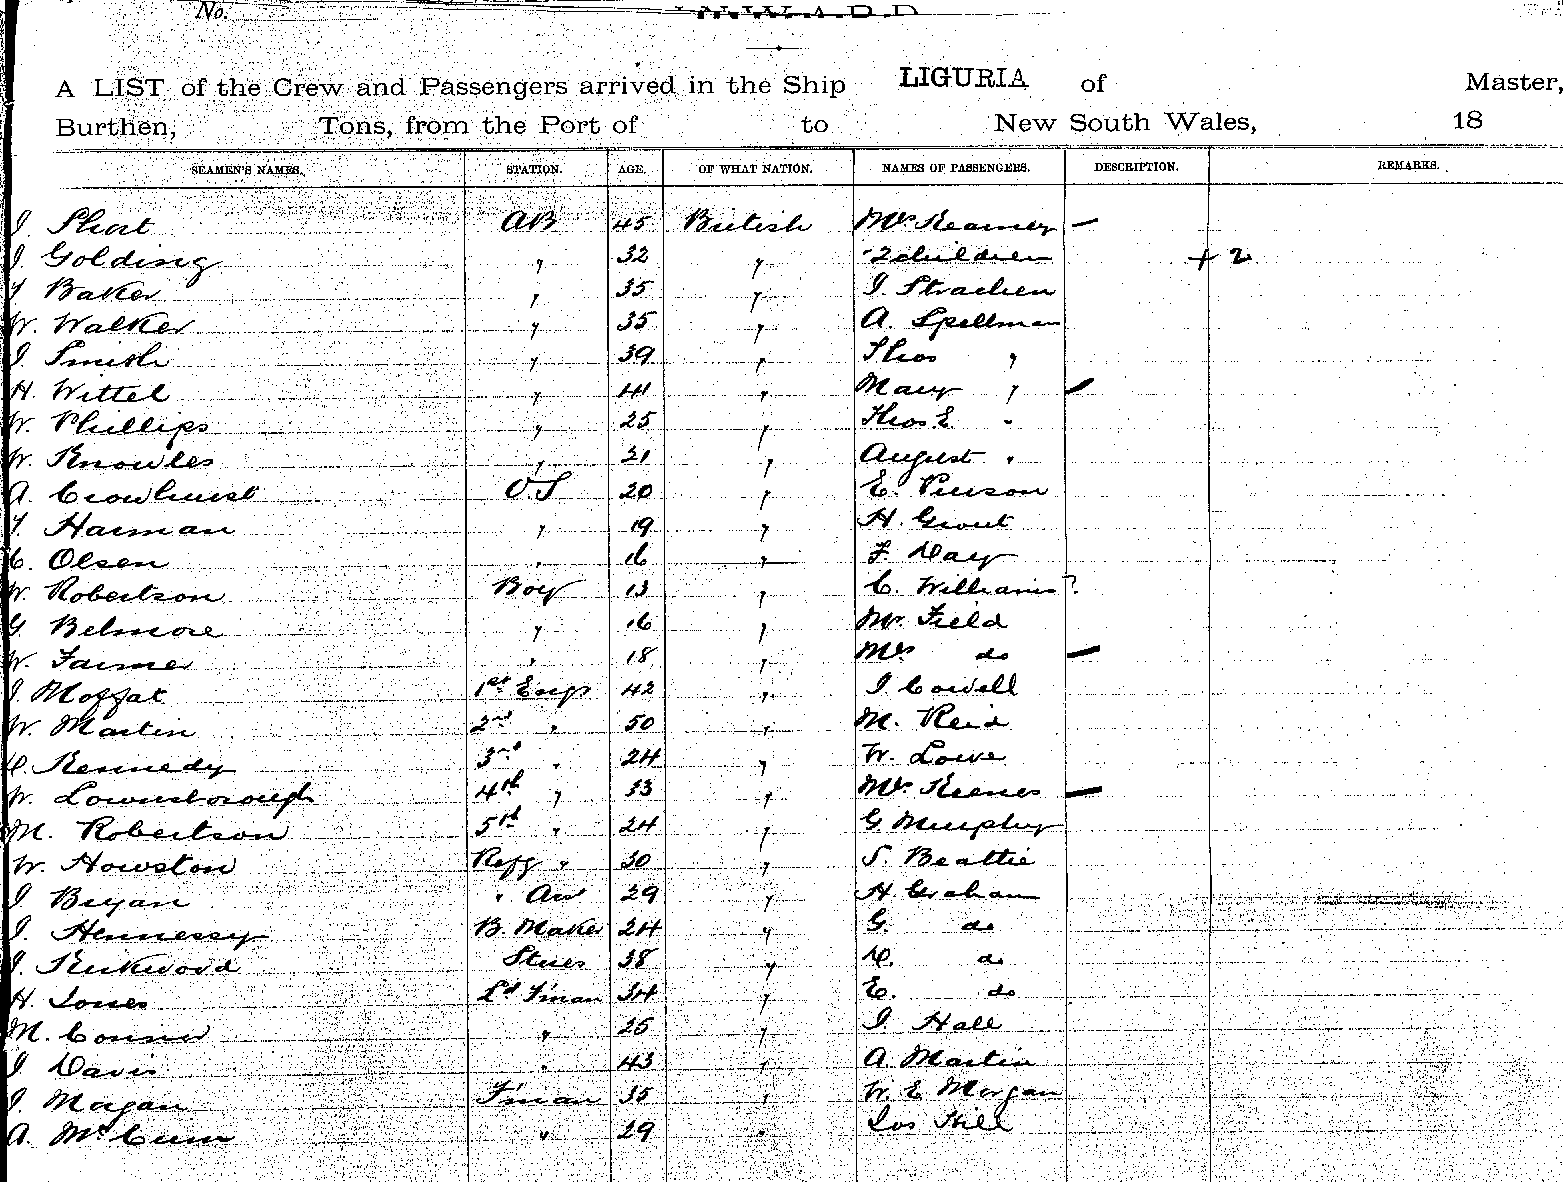 No.
INWARD
A LIST of the Crew and Passengers arrived in the Ship LIGURIA of Master,
Burthen, Tons, from the Port of to New South Wales, 18
SEAMEN'S NAMES. STATION. AGE. OF WHAT NATION. NAMES OF PASSENGERS. DESCRIPTION. REMARKS.
J. Short AB 45 British Mrs Kearney —
J. Golding " 32 " 2 children + 2
T Baker " 35 " J. Strachen
W. Walker " 35 " A. Spellman
J. Smith " 39 " Thos "
H. Wittel " 41 " Mary "
W. Phillips " 25 " Thos E "
W. Knowles " 21 " August "
A. Crowhurst OS 20 " E. Pierson
T. Harman " 19 " H. Grout
C. Olsen " 16 " F. Day
W. Robertson Boy 13 " C. Williams ?
G Belmore " 16 " Mr Field
W. Farmer " 18 " Mrs do —
J. Moffat 1st Engr 42 " J Cowell
W. Martin 2nd " 50 " M. Reid
D. Kennedy 3rd " 24 " W. Lowe
W. Lownsborough 4th " 33 " Mrs Keenes —
M. Robertson 5th " 24 " G Murphy
W. Howston Refg " 30 " S. Beattie
J Bryan " 29 " H Graham
J. Hennessy B. Maker 24 " G. do
J. Kirkwood 38 " D. do
H. Jones Ld F'man 34 " E. do
M. Connor " 25 " J. Hall
J Davis " 43 " A. Martin
J. Morgan F'man 35 " W. E Morgan
A. McCunn " 29 " Jos Hill